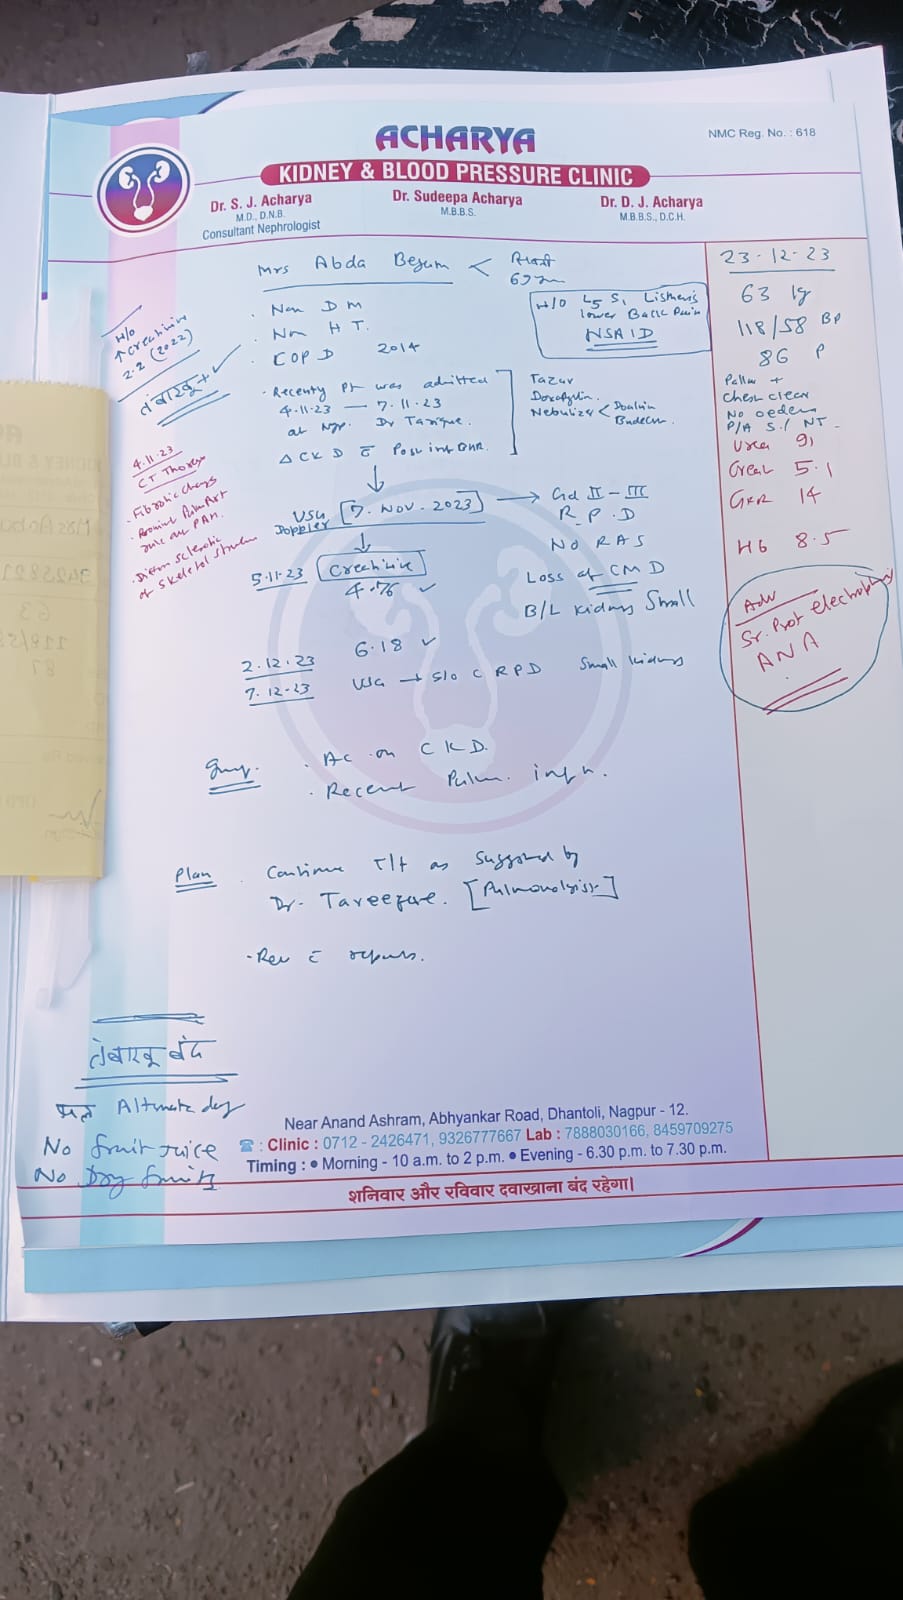 ACHARYA
NMC Reg. No. : 618
KIDNEY & BLOOD PRESSURE CLINIC
Dr. S. J. Acharya
M.D., D.N.B.
Consultant Nephrologist
Dr. Sudeepa Acharya
M.B.B.S.
Dr. D. J. Acharya
M.B.B.S., D.C.H.
Mrs Abda Begum <
H/O
↑ Creatinine
2.2 (2022)
तंबाखू +
. Non D M
. Non H T.
. COPD 2014
H/O L5 S1 Listhesis
lower Back Pain
NSAID
. Recently Pt was admitted
4.11.23 — 7.11.23
at Ngp. Dr Tarique.
Δ CKD c̄
Nebulizer <
4.11.23
CT Thorax
. Fibrotic changes
of skeletal
USG Doppler [7. NOV. 2023] → Gd II - III
R. P. D
No RAS
Loss of CMD
B/L Kidneys Small
5.11.23 Creatinine
4.76 ✓
2.12.23 6.18 ✓
7.12.23 USG → S/o C R P D Small kidneys
. Ac. on C K D.
. Recent Pulm. infn.
Plan . Continue T/t as suggested by
Dr. [Pulmonologist]
. Rev c̄ reports.
तंबाखू बंद
Alternate day
No fruit juice
No Dry fruits
23.12.23
63 kg
118/58 BP
86 P
Pallor +
Chest clear
No oedema
P/A S / NT
Urea 91
Creat 5.1
GFR 14
Hb 8.5
Adv
Sr. Prot electrophy
ANA
Near Anand Ashram, Abhyankar Road, Dhantoli, Nagpur - 12.
☎ : Clinic : 0712 - 2426471, 9326777667 Lab : 7888030166, 8459709275
Timing : ● Morning - 10 a.m. to 2 p.m. ● Evening - 6.30 p.m. to 7.30 p.m.
शनिवार और रविवार दवाखाना बंद रहेगा।